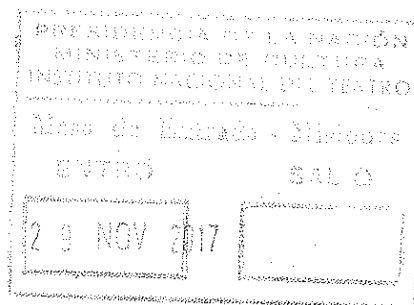 PRESIDENCIA DE LA NACIÓN
MINISTERIO DE CULTURA
INSTITUTO NACIONAL DEL TEATRO
Mesa de Entrada -
ENTRÓ SALIÓ
29 NOV 2017